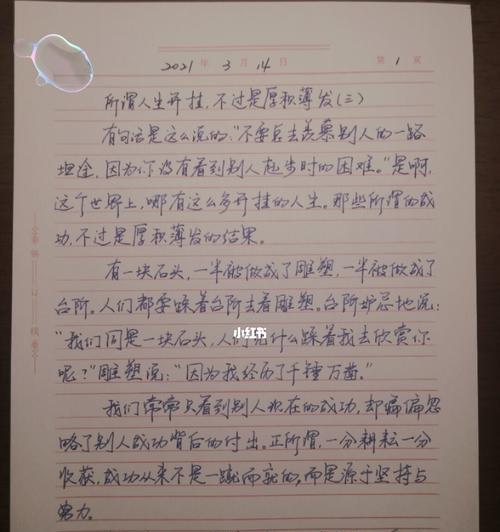 2021年 3月 14日 第 1 页
所谓人生开挂，不过是厚积薄发(三)
有句话是这么说的："不要总去羡慕别人的一路
坦途，因为你没有看到别人起步时的困难。"是啊，
这个世界上，哪有这么多开挂的人生。那些所谓的成
功，不过是厚积薄发的结果。
有一块石头，一半被做成了雕塑，一半被做成了
台阶。人们都要踩着台阶去看雕塑。台阶妒忌地说：
小红书
"我们同是一块石头，人们凭什么踩着我去欣赏你
呢？"雕塑说："因为我经历了千锤万凿。"
我们常常只看到别人现在的成功，却偏偏忽
略了别人成功背后的付出。正所谓，一分耕耘一分
收获，成功从来不是一蹴而就的，而是源于坚持与
努力。